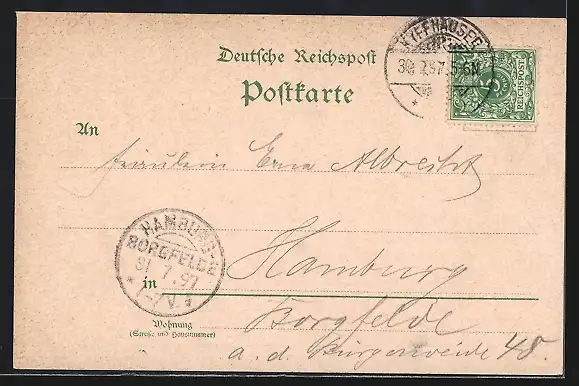 KYFFHÄUSER
30.7.97.5-6N.
Deutsche Reichspost
Postkarte
REICHSPOST
5
An
Fräulein Erna Albrecht
HAMBURG-
BORGFELDE
31.7.97
*1-7V.*
in Hamburg
Borgfelde
Wohnung
(Straße und Hausnummer)
a. d. Bürgerweide 48.